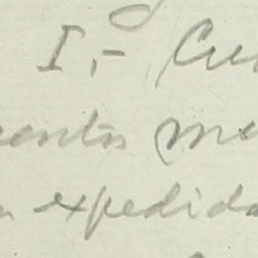 I,- Cu
entos me
expedida